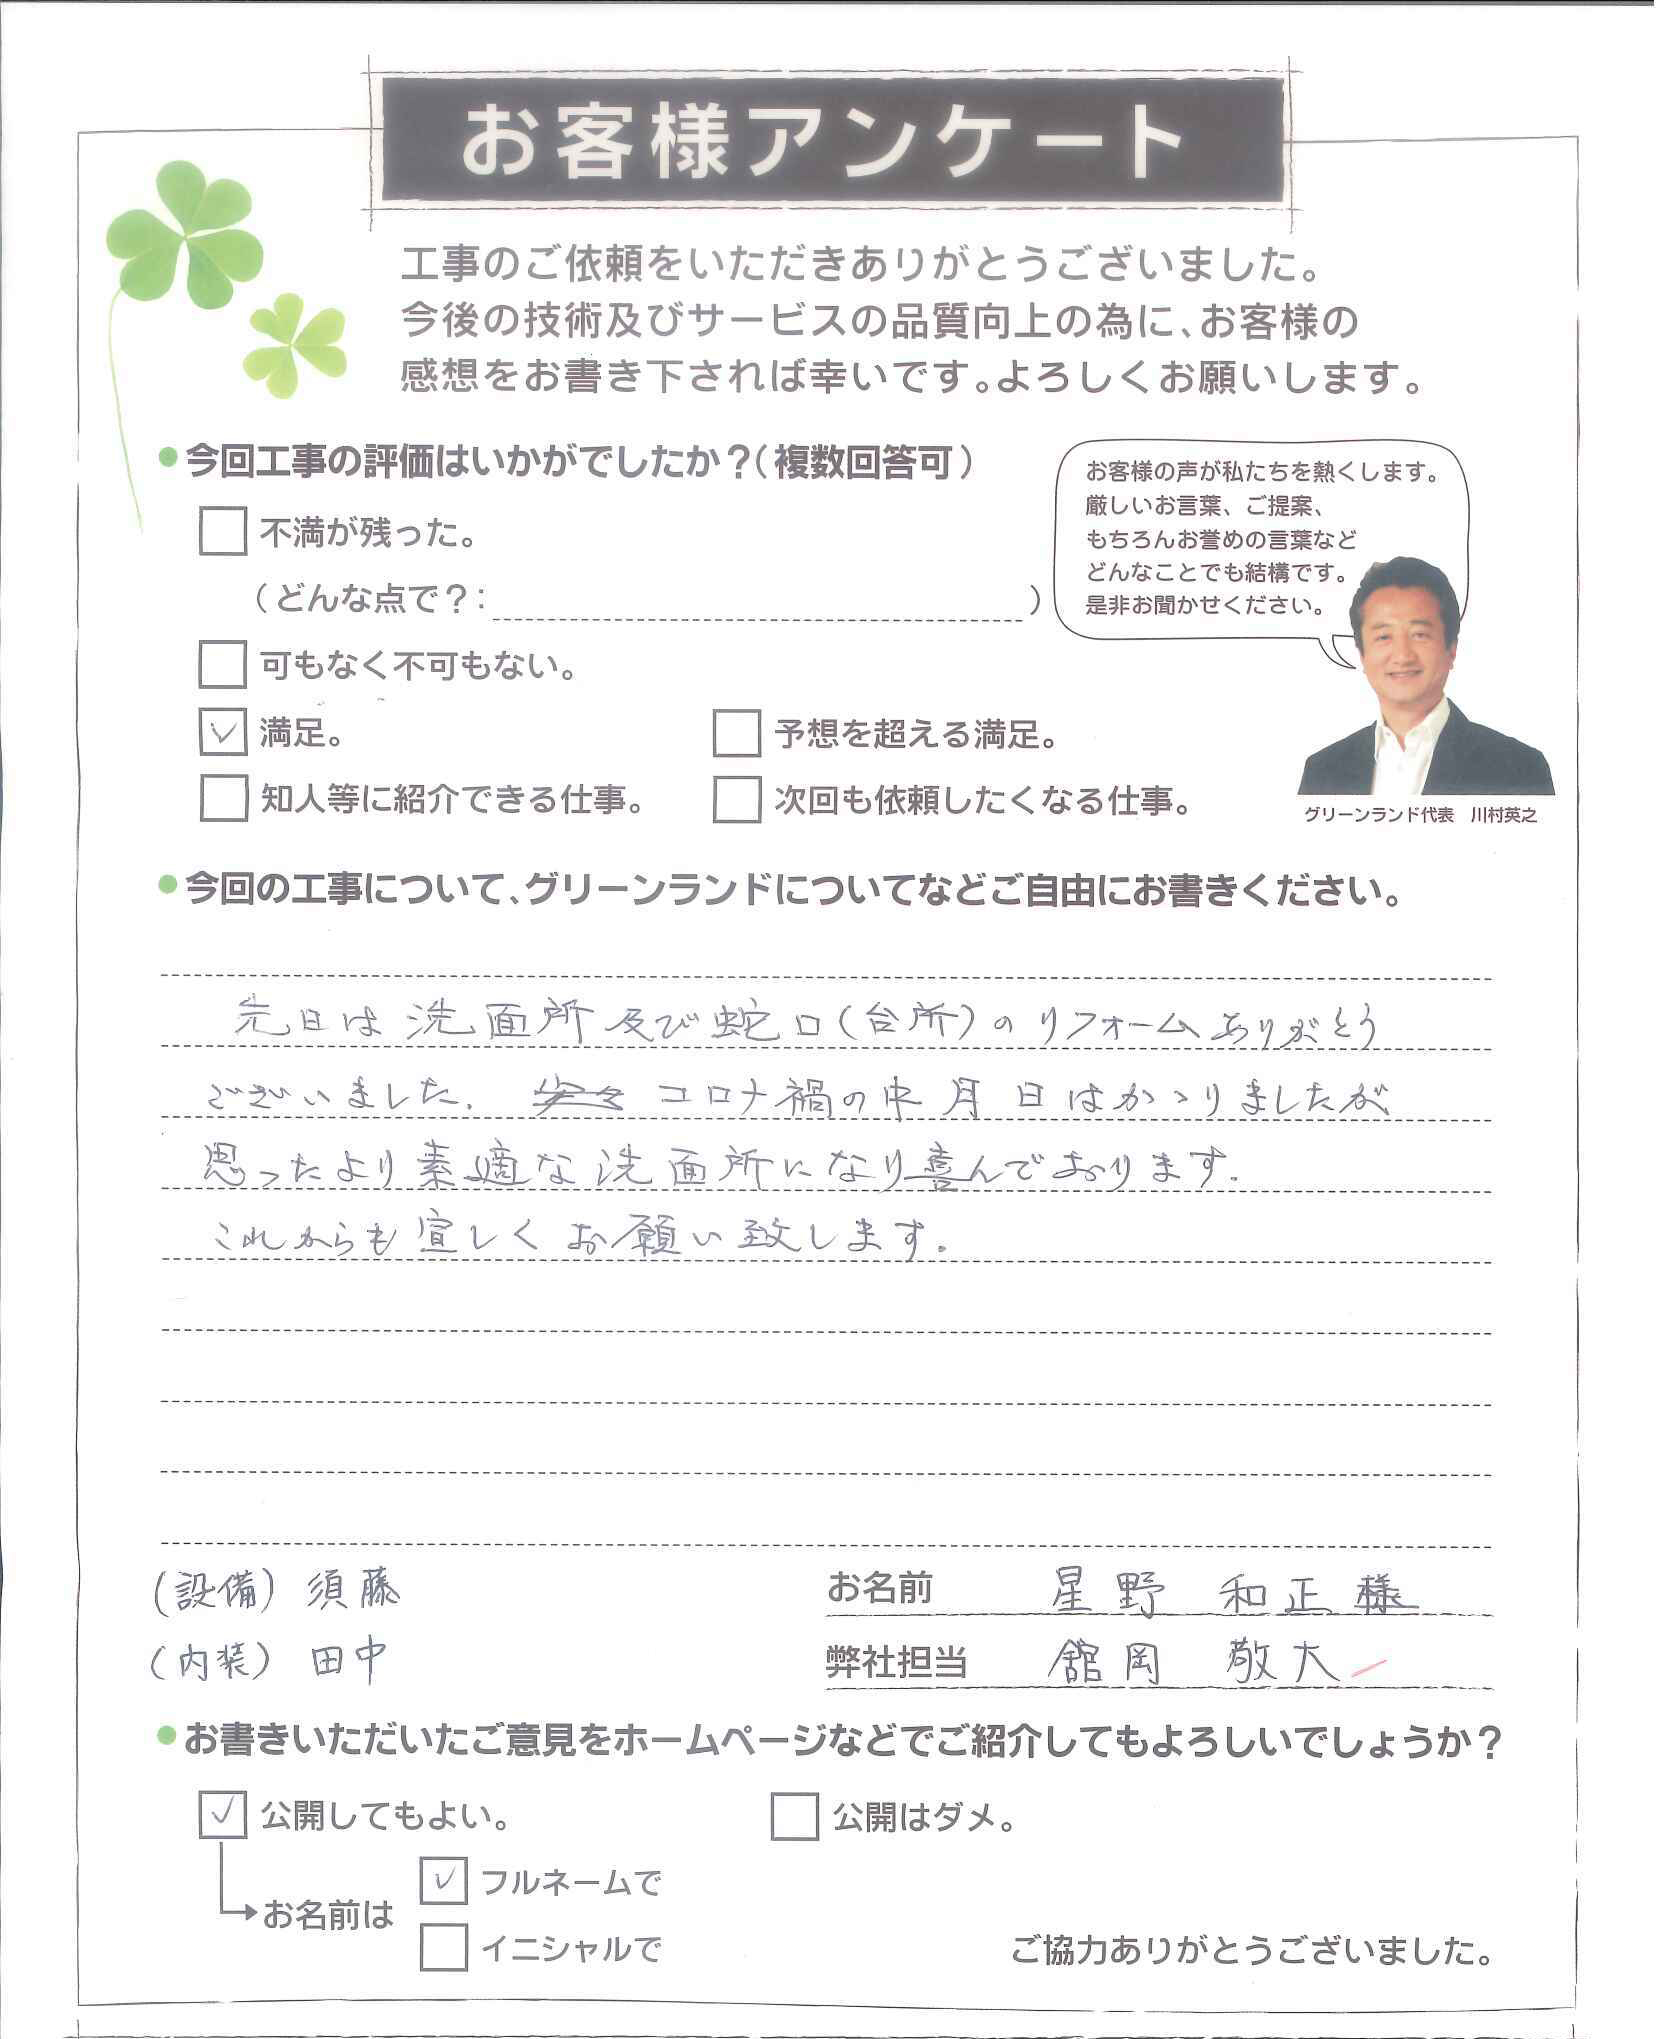 お客様アンケート
工事のご依頼をいただきありがとうございました。
今後の技術及びサービスの品質向上の為に、お客様の
感想をお書き下されば幸いです。よろしくお願いします。
今回工事の評価はいかがでしたか？（複数回答可）
不満が残った。
（どんな点で？： ）
可もなく不可もない。
満足。 予想を超える満足。
知人等に紹介できる仕事。 次回も依頼したくなる仕事。
お客様の声が私たちを熱くします。
厳しいお言葉、ご提案、
もちろんお誉めの言葉など
どんなことでも結構です。
是非お聞かせください。
グリーンランド代表 川村英之
今回の工事について、グリーンランドについてなどご自由にお書きください。
先日は洗面所及び蛇口（台所）のリフォームありがとう
ございました。コロナ禍の中月日はかゝりましたが
思ったより素適な洗面所になり喜んでおります。
これからも宜しくお願い致します。
（設備） 須藤
（内装） 田中
お名前 星野 和正 様
弊社担当 舘岡 敬大
お書きいただいたご意見をホームページなどでご紹介してもよろしいでしょうか？
公開してもよい。 公開はダメ。
お名前は
フルネームで
イニシャルで
ご協力ありがとうございました。